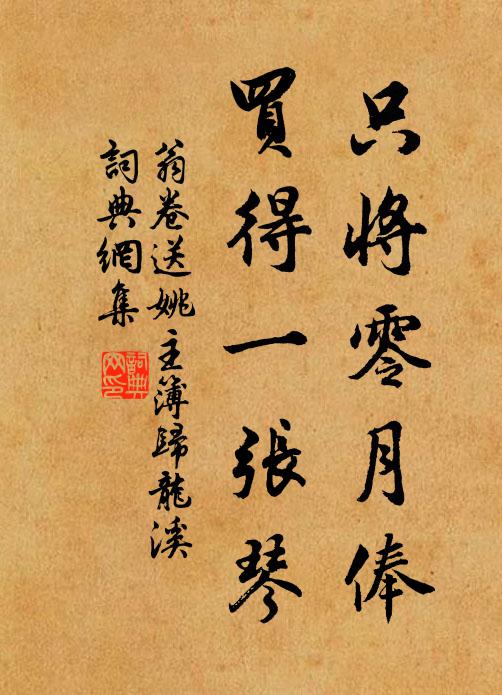 只將零月俸
買得一張琴
翁卷送姚主簿歸龍溪
詞典網集
詞典网印